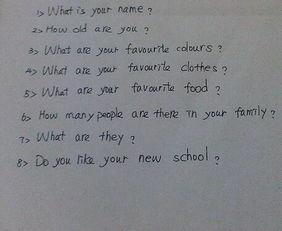 1> What is your name ?
2> How old are you ?
3> What are your favourite colours ?
4> What are your favourite clothes ?
5> What are your favourite food ?
6> How many people are there in your family ?
7> What are they ?
8> Do you like your new school ?